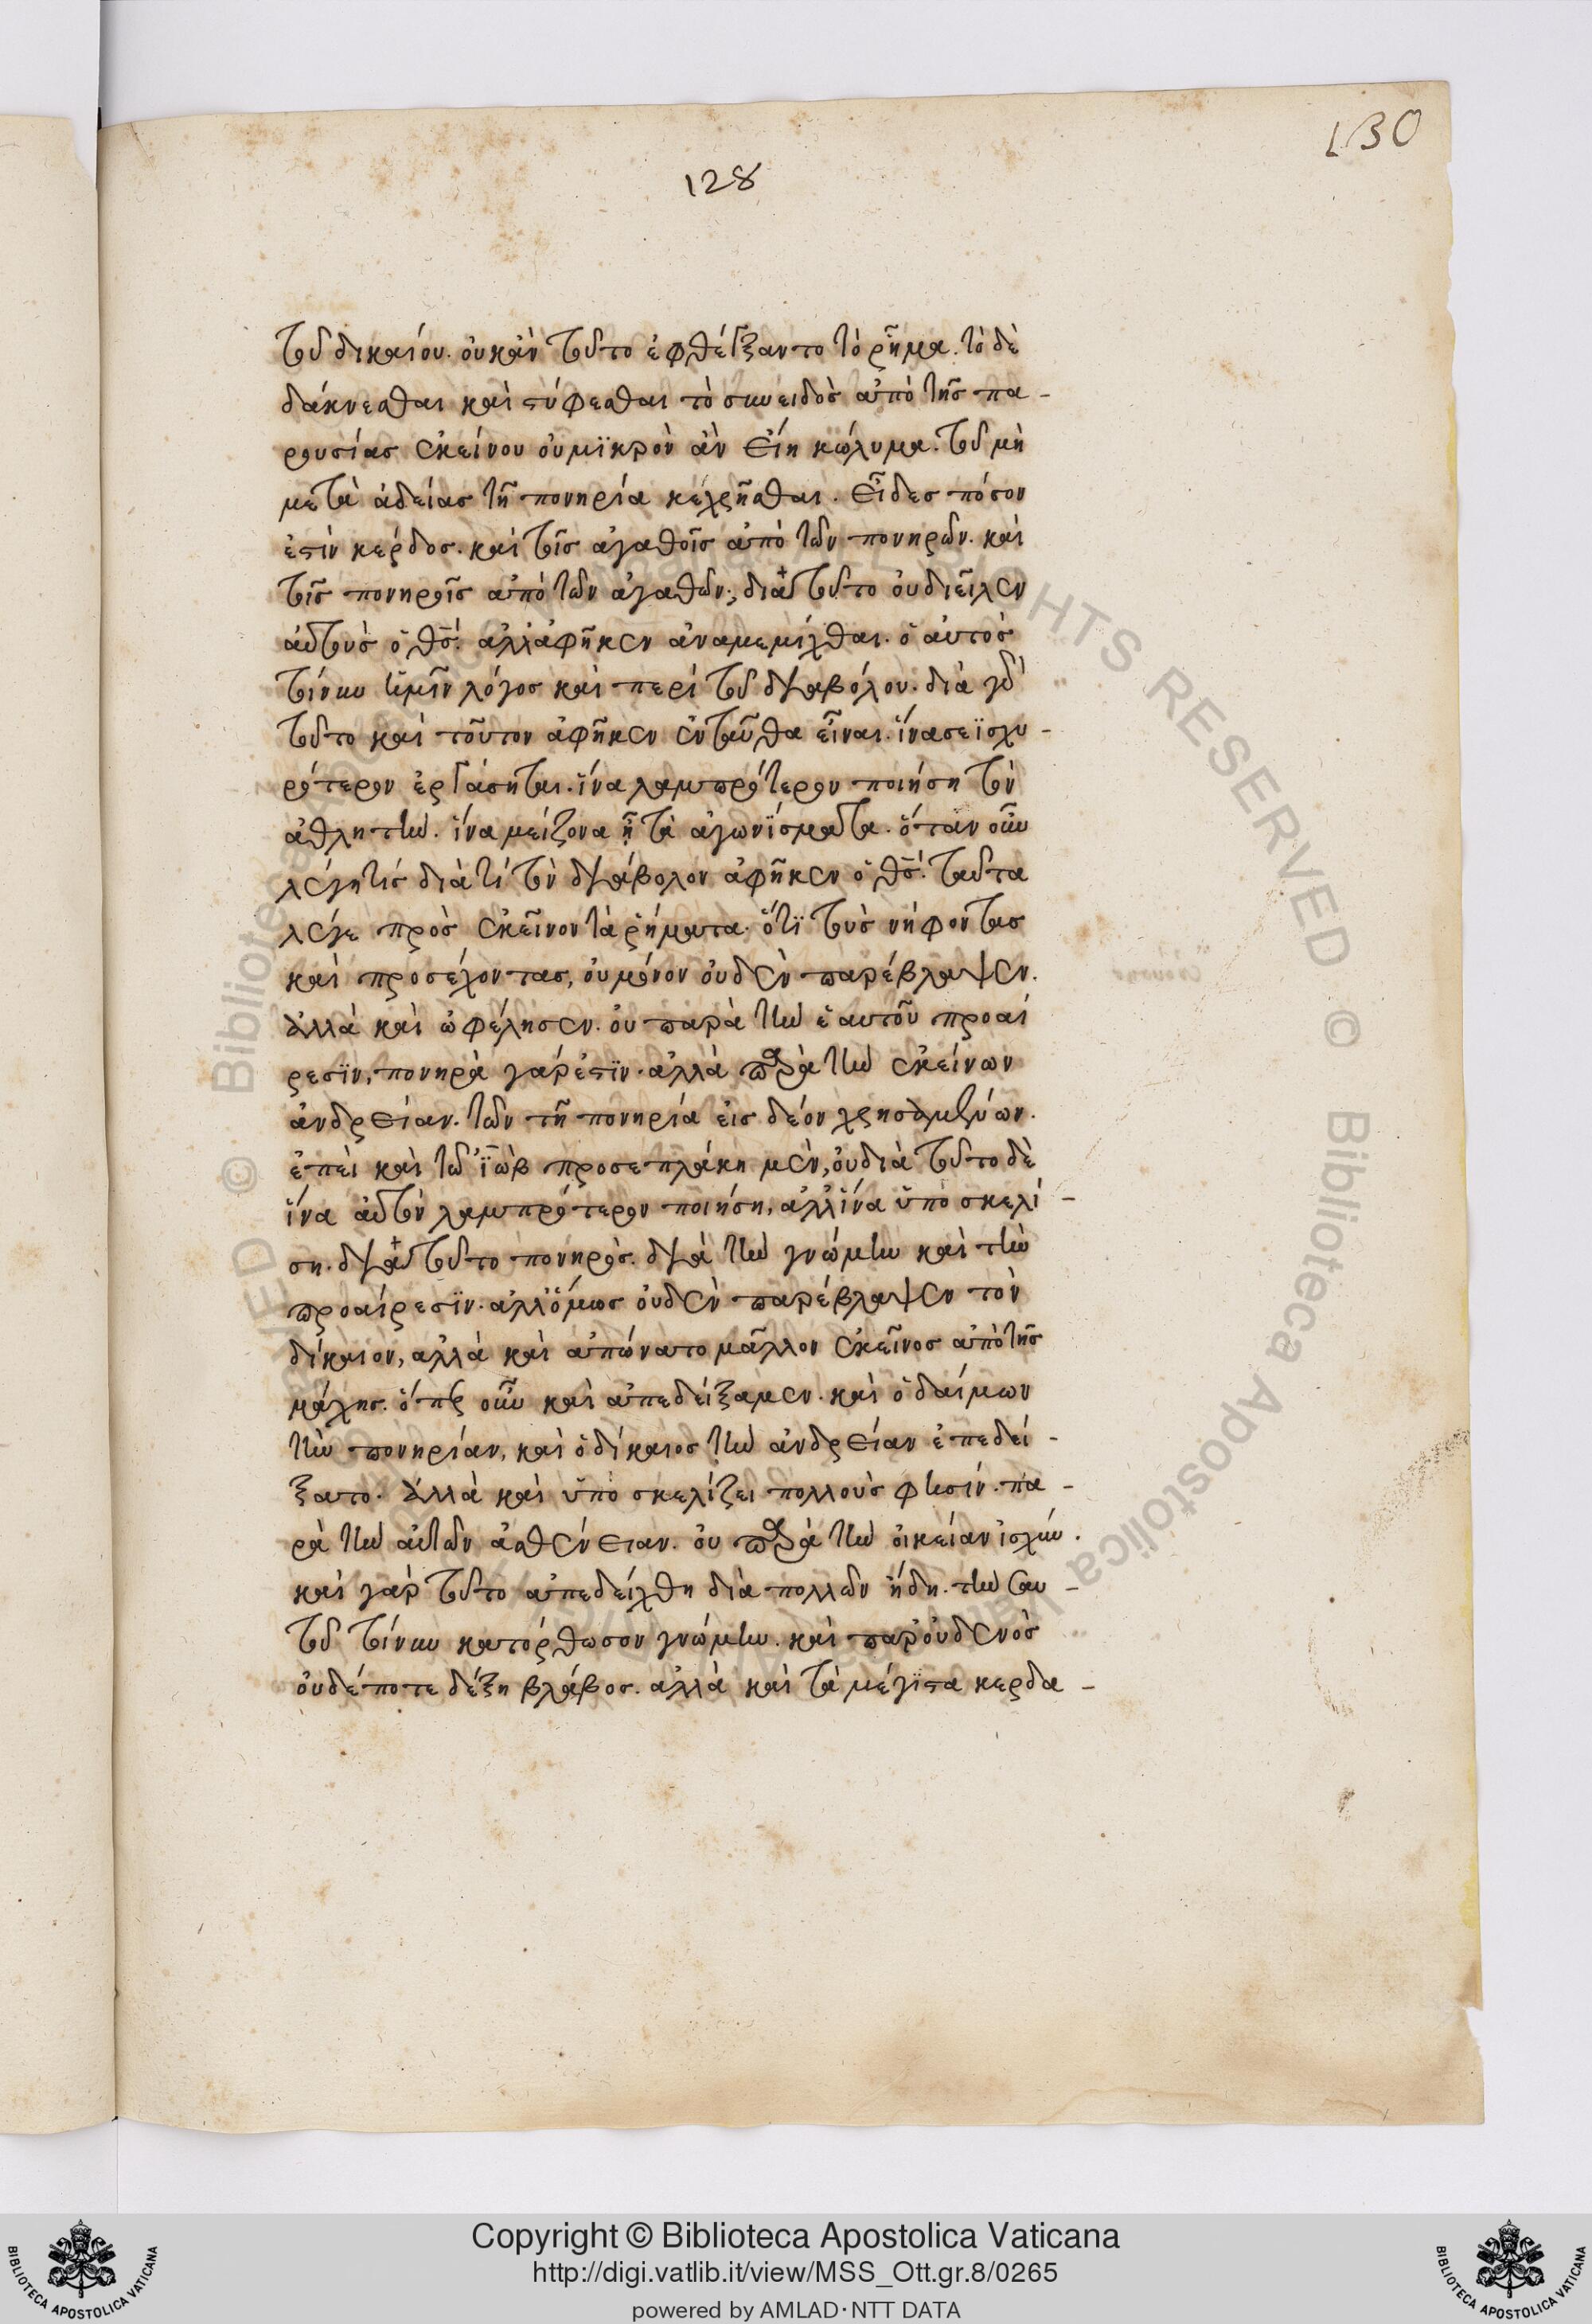 130
128
τοῦ δικαίου. οὐκ ἂν τοῦτο ἐφθέγξαντο τὸ ῥῆμα. τὸ δὲ
δάκνεσθαι καὶ στύφεσθαι τὸ συνειδὸς ἀπὸ τῆς πα-
ρουσίας ἐκείνου οὐ μϊκρὸν ἂν εἴη κώλυμα. τοῦ μὴ
μετὰ ἀδείας τῆ πονηρία κεχρῆσθαι. εἶδες πόσον
ἐστὶν κέρδος. καὶ τοῖς ἀγαθοῖς ἀπὸ τῶν πονηρῶν. καὶ
τοῖς πονηροῖς ἀπὸ τῶν ἀγαθῶν; διὰ τοῦτο οὐ διεῖλεν
αὐτοὺς ὁ θς. ἀλλ' ἀφῆκεν ἀναμεμίχθαι. ὁ αὐτὸς
τοίνυν ἡμῖν λόγος καὶ περὶ τοῦ διαβόλου. διὰ γὰρ
τοῦτο καὶ τοῦτον ἀφῆκεν ἐνταῦθα εἶναι. ἵνα σε ϊσχυ-
ρότερον ἐργάσηται. ἵνα λαμπρότερον ποιήση τὸν
ἀθλητὴν. ἵνα μείζονα ἦ τὰ ἀγωνΐσματα. ὅταν οὖν
λέγη τίς διατί τὸν διάβολον ἀφῆκεν ὁ θς. ταῦτα
λέγε πρὸς ἐκεῖνον τὰ ῥήματα. ὅτϊ τοὺς νήφοντας
καὶ προσέχοντας, οὐ μόνον οὐδὲν παρέβλαψεν.
ἀλλὰ καὶ ὠφέλησεν. οὐ παρὰ τὴν ἑαυτοῦ προαί
ρεσϊν, πονηρὰ γάρ ἐστϊν. ἀλλὰ παρὰ τὴν ἐκείνων
ἀνδρείαν. τῶν τῆ πονηρία εἰς δέον χρησαμένων.
ἐπεὶ καὶ τῶ ϊὼβ προσεπλάκη μὲν, οὐ διὰ τοῦτο δὲ
ἵνα αὐτὸν λαμπρότερον ποιήση, ἀλλ' ἵνα ὑποσκελί-
ση. διὰ τοῦτο πονηρὸς. διὰ τὴν γνώμην καὶ τὴν
προαίρεσϊν. ἀλλ' ὅμως οὐδὲν παρέβλαψεν τὸν
δίκαιον, ἀλλὰ καὶ ἀπώνατο μᾶλλον ἐκεῖνος ἀπὸ τῆς
μάχης. ὅπερ οὖν καὶ ἀπεδείξαμεν. καὶ ὁ δαίμων
τὴν πονηρίαν, καὶ ὁ δίκαιος τὴν ἀνδρείαν ἐπεδεί-
ξατο. ἀλλὰ καὶ ὑποσκελίζει πολλοὺς φησίν. πα-
ρὰ τὴν αὐτῶν ἀσθένειαν. οὐ παρὰ τὴν οἰκείαν ἰσχύν.
καὶ γὰρ τοῦτο ἀπεδείχθη διὰ πολλῶν ἤδη. τὴν σαυ-
τοῦ τοίνυν κατόρθωσον γνώμην. καὶ παρ' οὐδενὸς
οὐδέποτε δέξη βλάβος. ἀλλὰ καὶ τὰ μέγϊστα κερδα-
Copyright © Biblioteca Apostolica Vaticana
http://digi.vatlib.it/view/MSS_Ott.gr.8/0265
powered by AMLAD·NTT DATA
BIBLIOTECA APOSTOLICA VATICANA
BIBLIOTECA APOSTOLICA VATICANA